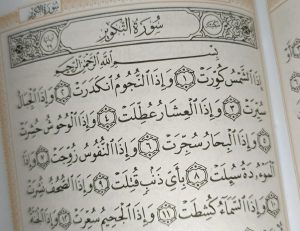 سُورَةُ التَّكْوِيرِ
سُورَةُ التَّكْوِيرِ
بِسْمِ اللَّهِ الرَّحْمَٰنِ الرَّحِيمِ
إِذَا ٱلشَّمْسُ كُوِّرَتْ ١ وَإِذَا ٱلنُّجُومُ ٱنكَدَرَتْ ٢ وَإِذَا ٱلْجِبَالُ
سُيِّرَتْ ٣ وَإِذَا ٱلْعِشَارُ عُطِّلَتْ ٤ وَإِذَا ٱلْوُحُوشُ حُشِرَتْ
٥ وَإِذَا ٱلْبِحَارُ سُجِّرَتْ ٦ وَإِذَا ٱلنُّفُوسُ زُوِّجَتْ ٧ وَإِذَا
ٱلْمَوْءُۥدَةُ سُئِلَتْ ٨ بِأَىِّ ذَنۢبٍ قُتِلَتْ ٩ وَإِذَا ٱلصُّحُفُ نُشِرَتْ
١٠ وَإِذَا ٱلسَّمَآءُ كُشِطَتْ ١١ وَإِذَا ٱلْجَحِيمُ سُعِّرَتْ ١٢ وَإِذَا ٱلْجَنَّةُ